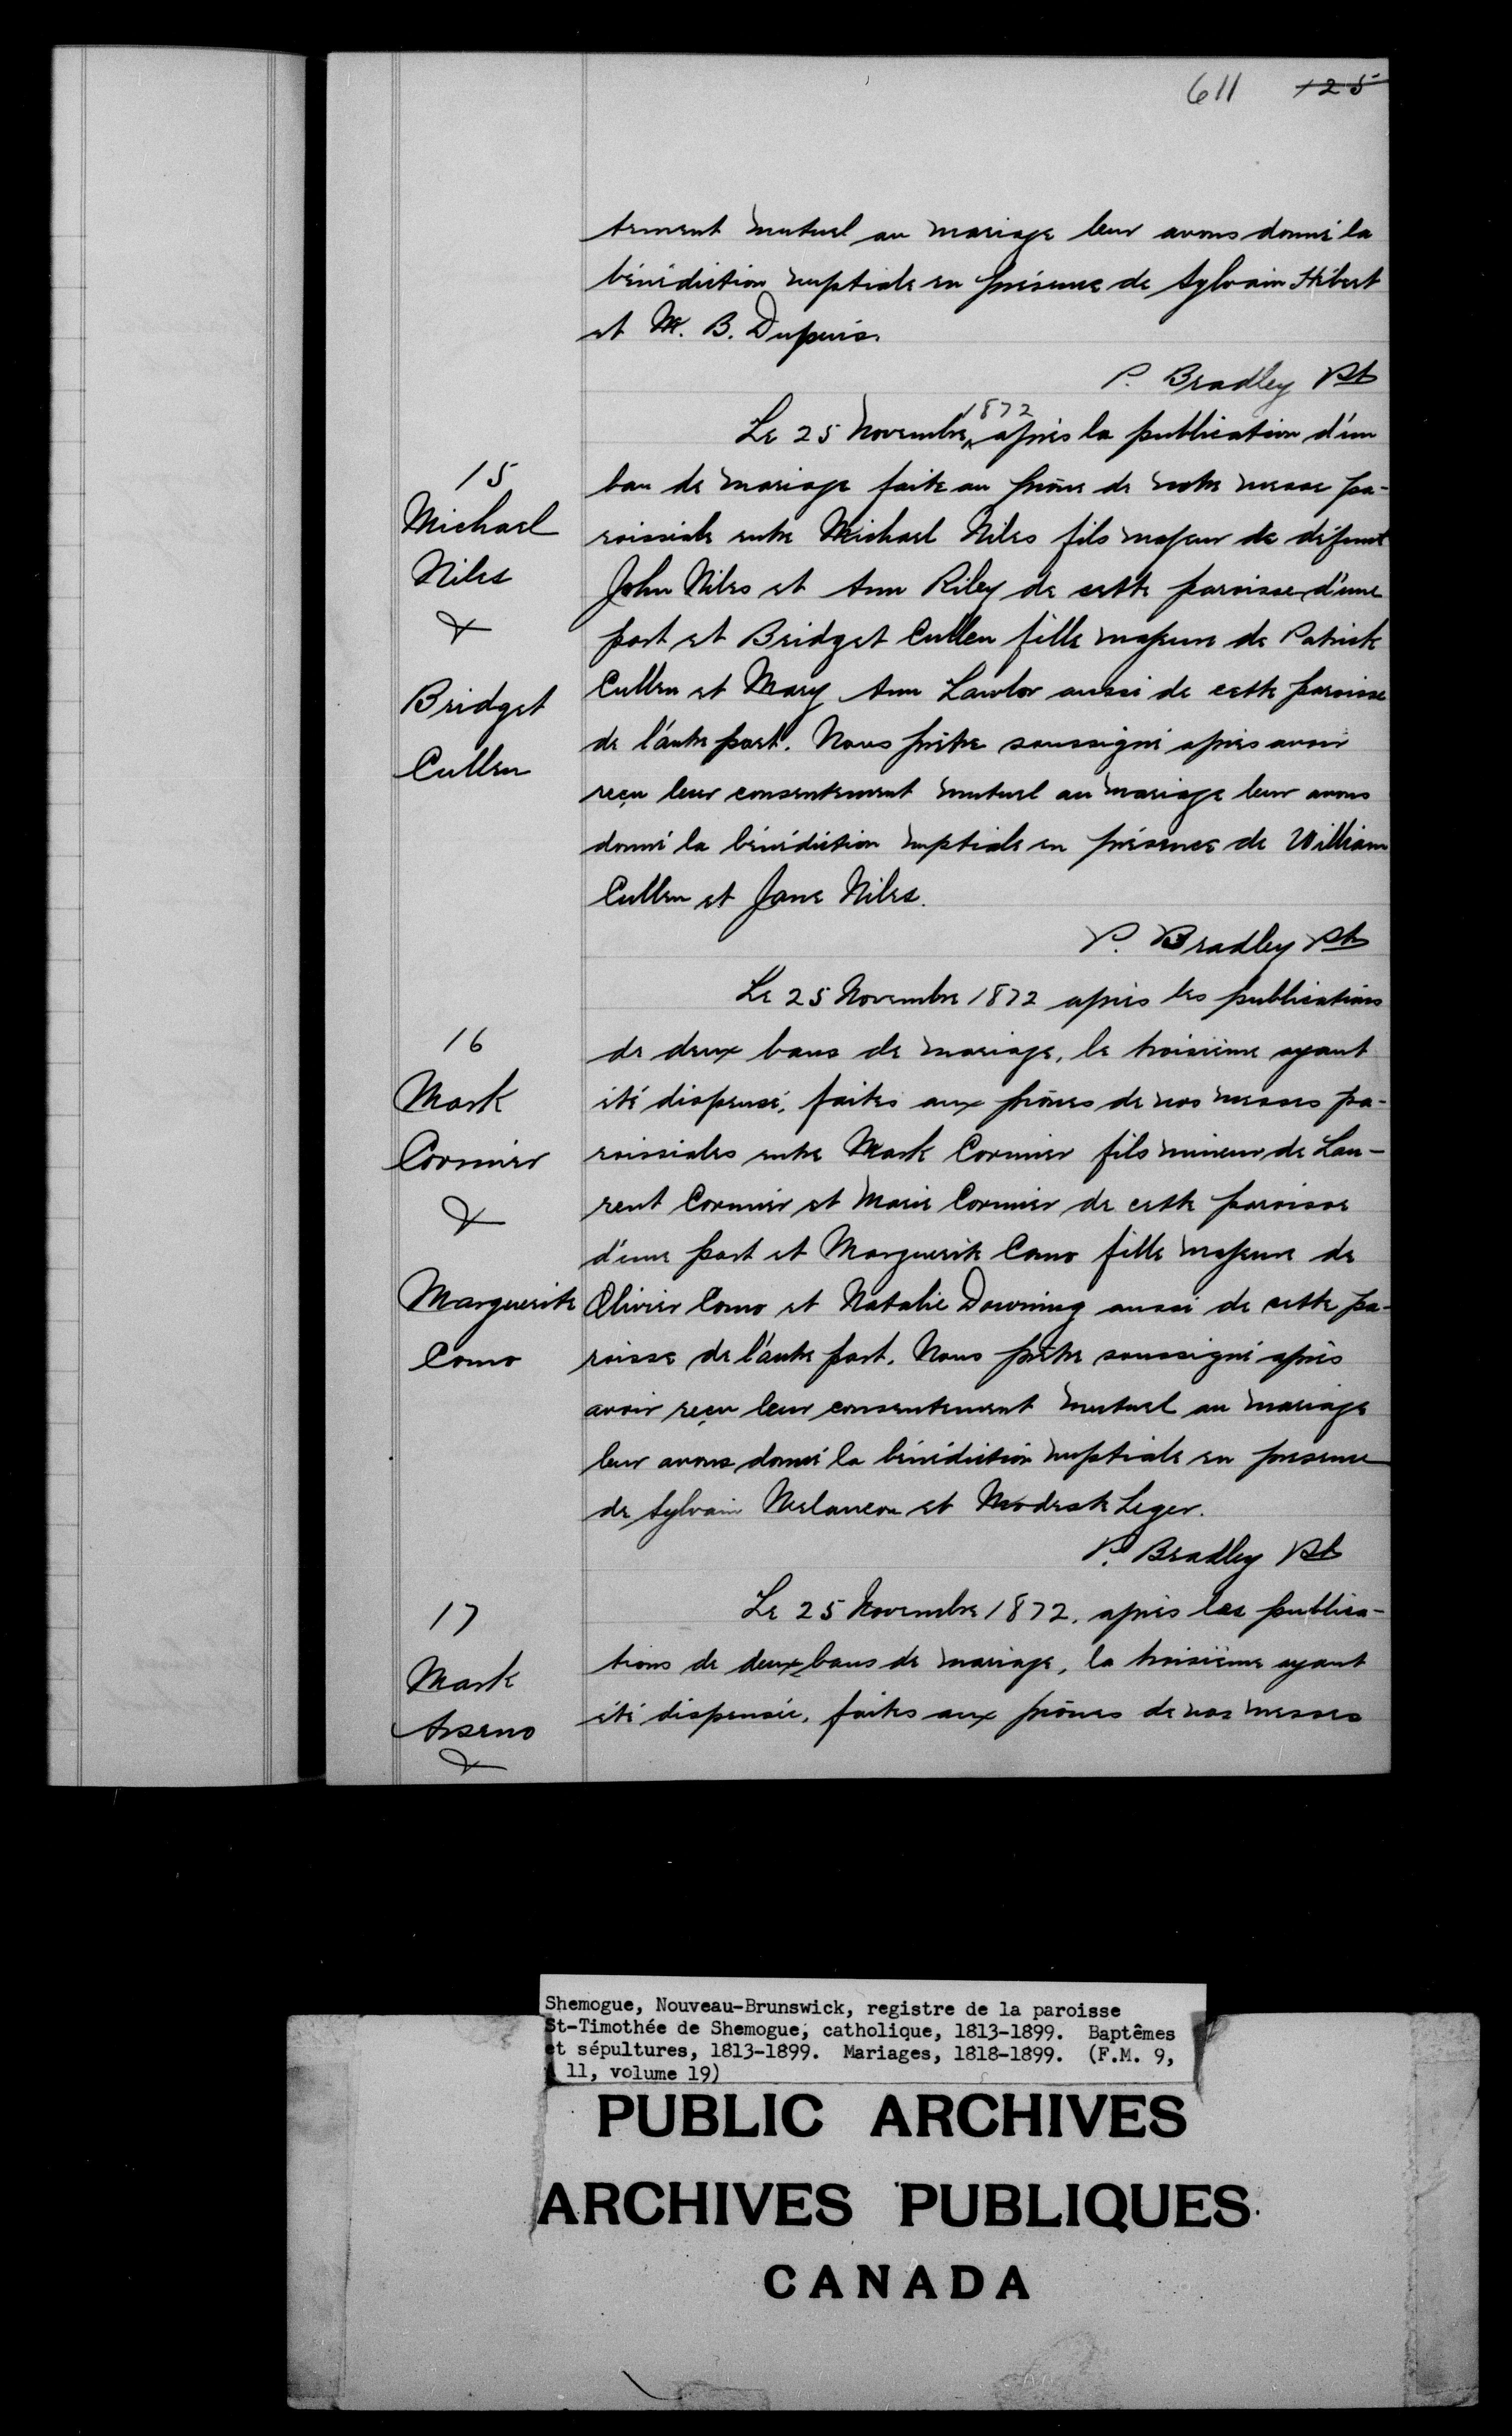 611 125
tement mutuel au mariage leur avons donné la
bénédiction nuptiale en présence de Sylvain Hébert
et M. B. Dupuis.
P. Bradley Pt
Le 25 Novembre 1872 après la publication d'un
15
ban de mariage faite au prône de notre messe pa-
Michael
roissiale entre Michael Niles fils majeur de défunt
Niles
John Niles et Ann Riley de cette paroisse d'une
&
part et Bridget Cullen fille majeure de Patrick
Bridget
Cullen et Mary Ann Lawlor aussi de cette paroisse
de l'autre part. Nous prêtre soussigné après avoir
Cullen
reçu leur consentement mutuel au mariage leur avons
donné la bénédiction nuptiale en présence de William
Cullen et Jane Niles.
P. Bradley Pt
Le 25 Novembre 1872 après les publications
16
de deux bans de mariage, le troisième ayant
Mark
été dispensé, faites aux prônes de nos messes pa-
Cormier
roissiales entre Mark Cormier fils mineur de Lau-
&
rent Cormier et Marie Cormier de cette paroisse
d'une part et Marguerite Como fille majeure de
Marguerite
Olivier Como et Natalie Downing aussi de cette pa-
Como
roisse de l'autre part. Nous prêtre soussigné après
avoir reçu leur consentement mutuel au mariage
leur avons donné la bénédiction nuptiale en presence
de Sylvain Melancon et Modeste Leger.
P. Bradley Pt
17
Le 25 Novembre 1872, après les publica-
Mark
tions de deux bans de mariage, la troisième ayant
Arseno
été dispensée, faites aux prônes de nos messes
&
Shemogue, Nouveau-Brunswick, registre de la paroisse
St-Timothée de Shemogue, catholique, 1813-1899. Baptêmes
et sépultures, 1813-1899. Mariages, 1818-1899. (F.M. 9,
11, volume 19)
PUBLIC ARCHIVES
ARCHIVES PUBLIQUES
CANADA